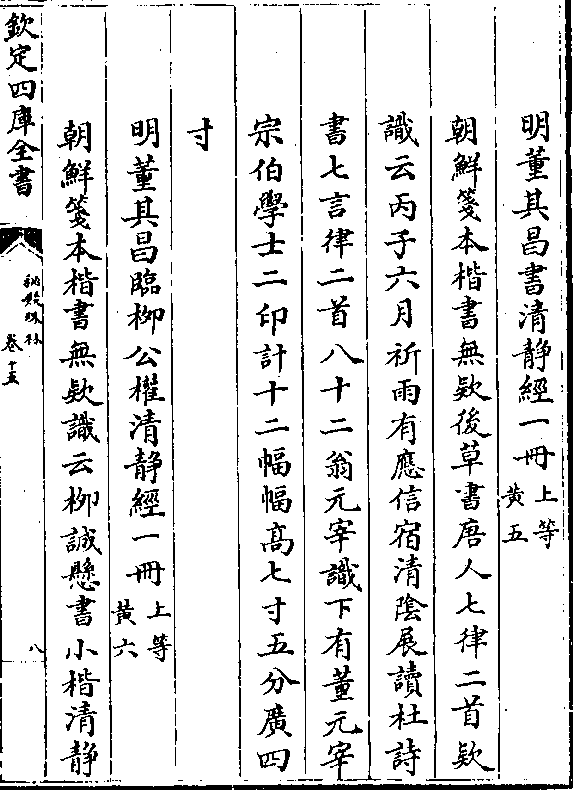 明董其昌書清靜經一冊上等黃五
朝鮮箋本楷書無欵後草書唐人七律二首欵
識云丙子六月祈雨有應信宿清陰展讀杜詩
書七言律二首八十二翁元宰識下有董元宰
宗伯學士二印計十二幅幅高七寸五分廣四
寸
明董其昌臨柳公權清靜經一冊上等黃六
朝鮮箋本楷書無欵識云柳誠懸書小楷清静
欽定四庫全書
秘殿珠林
卷十五
八